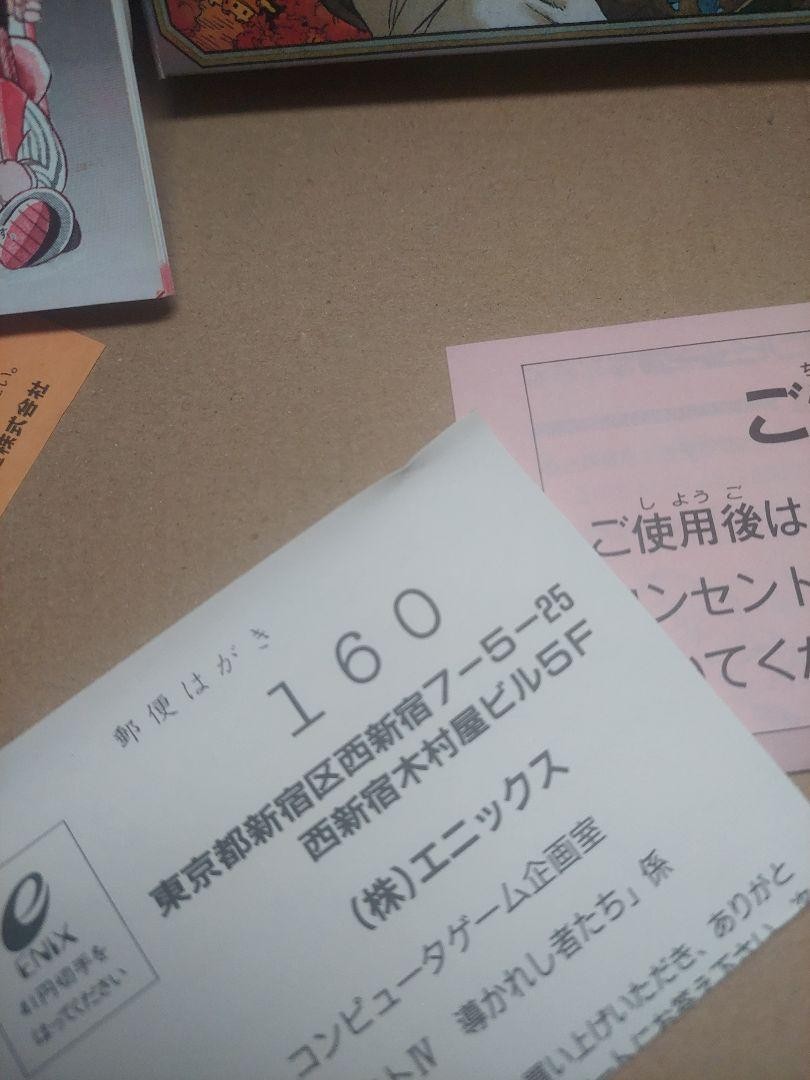 株式会社
ご
ご使用後は
しようご
コンセント
てくだ
郵便はがき
160
東京都新宿区西新宿7-5-25
西新宿木村屋ビル5F
(株)エニックス
コンピュータゲーム企画室
トⅣ 導かれし者たち」係
買い上げいただき、ありがと
にお答え下さい
ENIX
41円切手を
はってください